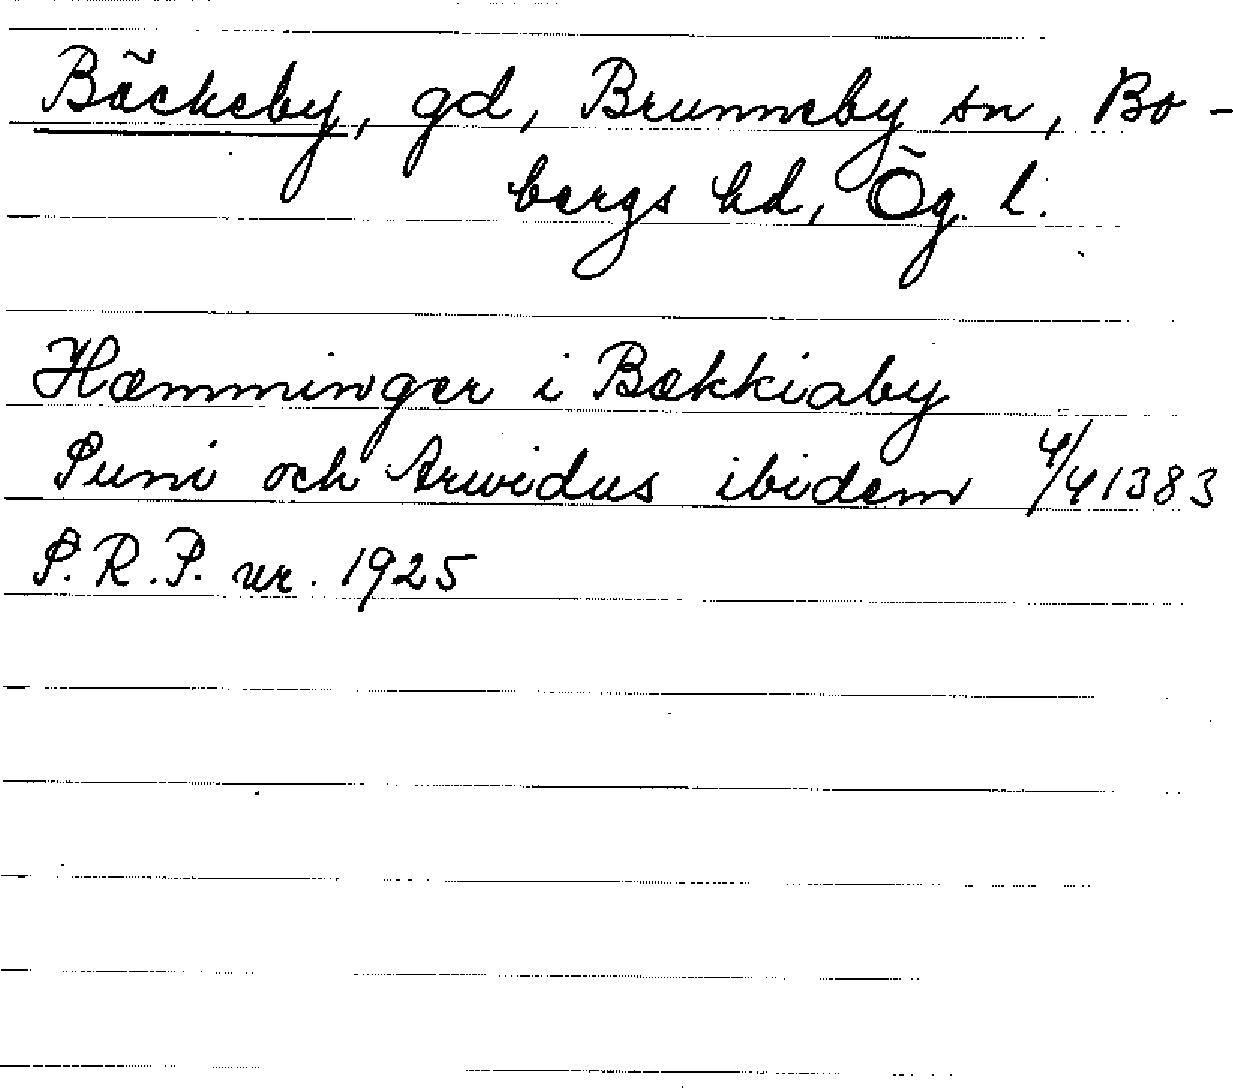 Bäckeby, gd, Brunneby sn, Bo-
bergs hd, Ög. l.
Hæmminger i Bækkiaby
Suni och Arwidus ibidem 4/4 1383
S.R.P. nr. 1925